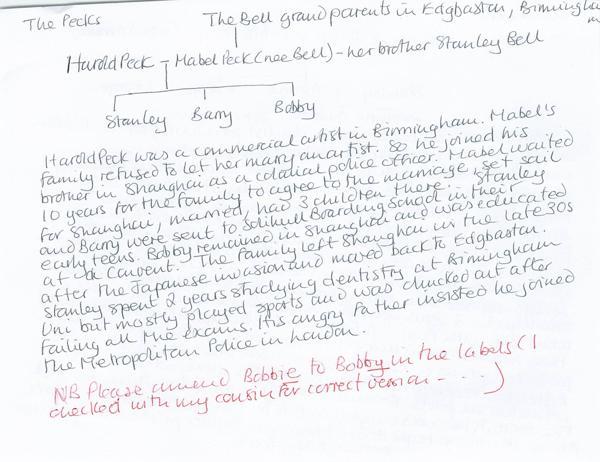 The Pecks
The Bell grandparents in Edgbaston, Birmingham
Harold Peck - Mabel Peck (nee Bell) - her brother Stanley Bell
Stanley Barry Bobby
Harold Peck was a commercial artist in Birmingham. Mabel's
family refused to let her marry an artist. So he joined his
brother in Shanghai as a colonial police officer. Mabel waited
10 years for the family to agree to the marriage, set sail
for Shanghai, married, had 3 children there. Stanley
and Barry were sent to Solihull Boarding School in their
early teens. Bobby remained in Shanghai and was educated
at the Convent. The family left Shanghai in the late 30s
after the Japanese invasion and moved back to Edgbaston.
Stanley spent 2 years studying dentistry at Birmingham
Uni but mostly played sports and was chucked out after
failing all the exams. His angry father insisted he joined
the Metropolitan Police in London.
NB Please amend Bobbie to Bobby in the labels (I
checked with my cousin for correct version - ...)